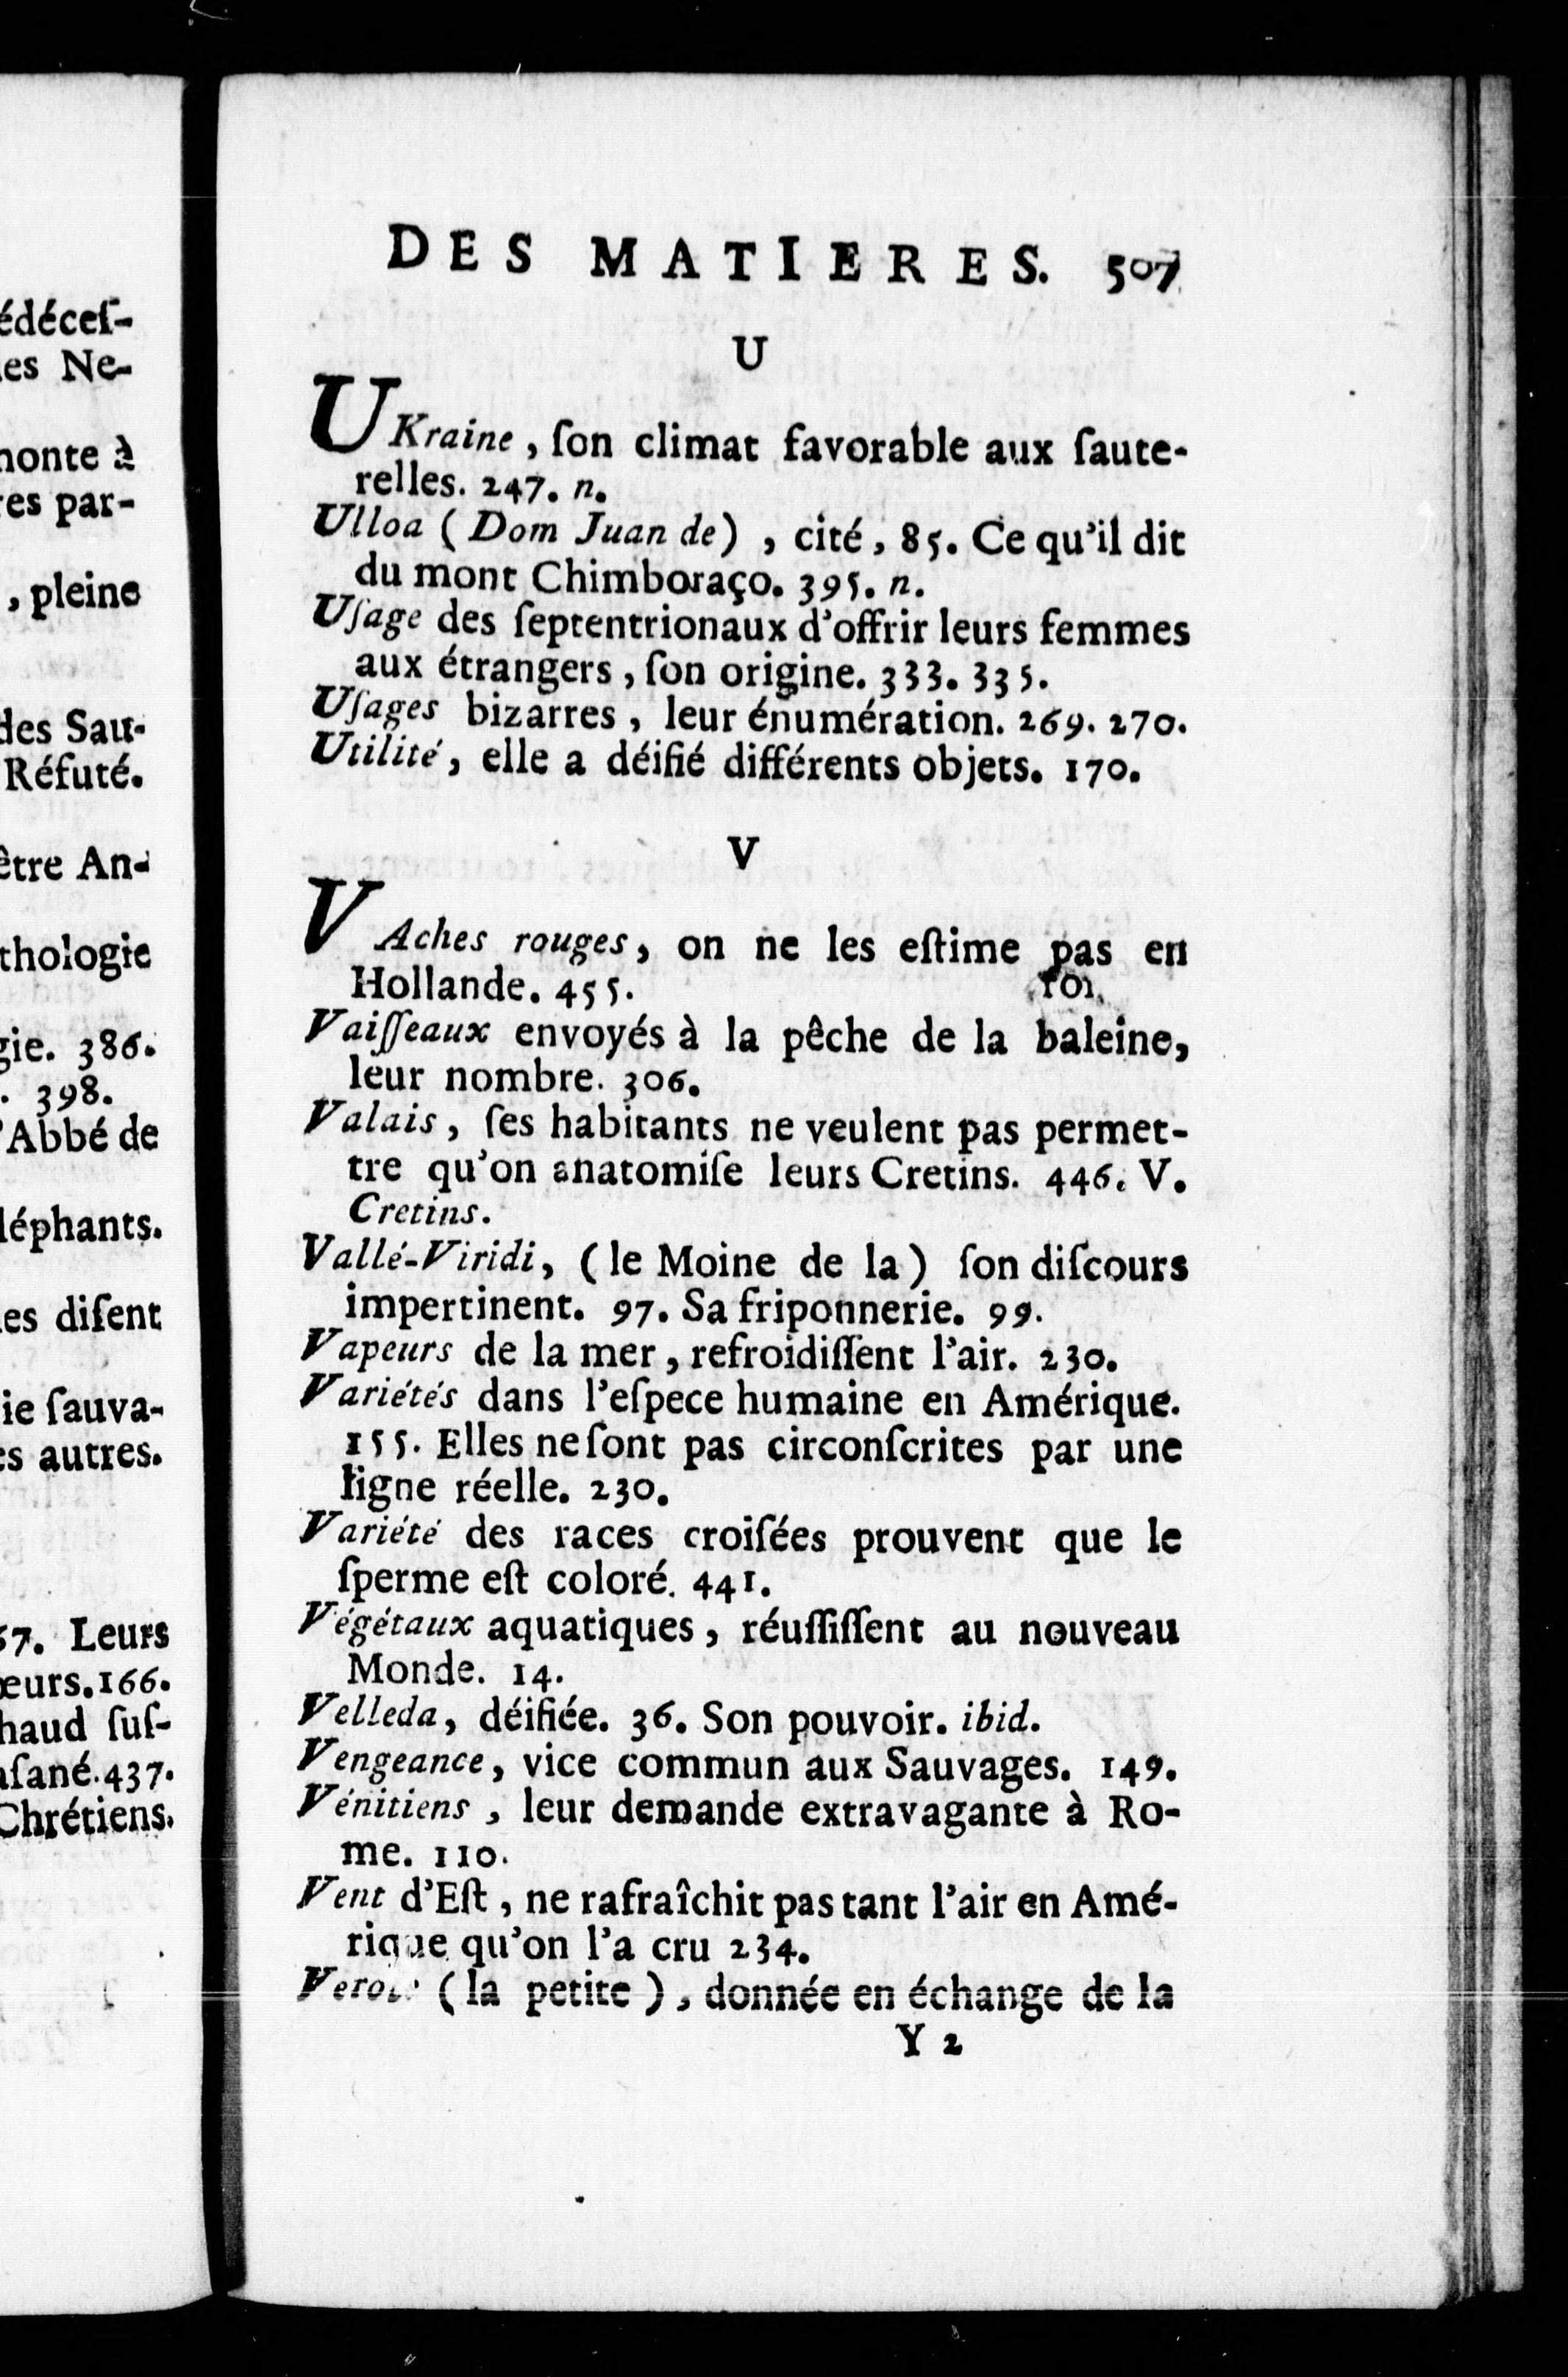 édéces-
es Ne-
monte à
res par-
, pleine
des Sau-
Réfuté.
être An-
thologie
gie. 386.
. 398.
'Abbé de
léphants.
es diſent
ie ſauva-
es autres.
67. Leurs
œurs. 166.
haud ſuſ-
aſané. 437.
Chrétiens.
DES MATIERES. 507
U
UKraine, ſon climat favorable aux ſaute-
relles. 247. n.
Ulloa (Dom Juan de), cité, 85. Ce qu'il dit
du mont Chimboraço. 395. n.
Uſage des ſeptentrionaux d'offrir leurs femmes
aux étrangers, ſon origine. 333. 335.
Uſages bizarres, leur énumération. 269. 270.
Utilité, elle a déifié différents objets. 170.
V
VAches rouges, on ne les eſtime pas en
Hollande. 455.
Vaiſſeaux envoyés à la pêche de la baleine,
leur nombre. 306.
Valais, ſes habitants ne veulent pas permet-
tre qu'on anatomiſe leurs Cretins. 446. V.
Cretins.
Vallé-Viridi, (le Moine de la) ſon diſcours
impertinent. 97. Sa friponnerie. 99.
Vapeurs de la mer, refroidiſſent l'air. 230.
Variétés dans l'eſpece humaine en Amérique.
155. Elles ne ſont pas circonſcrites par une
ligne réelle. 230.
Variété des races croiſées prouvent que le
ſperme eſt coloré. 441.
Végétaux aquatiques, réuſſiſſent au nouveau
Monde. 14.
Velleda, déifiée. 36. Son pouvoir. ibid.
Vengeance, vice commun aux Sauvages. 149.
Vénitiens, leur demande extravagante à Ro-
me. 110.
Vent d'Eſt, ne rafraîchit pas tant l'air en Amé-
rique qu'on l'a cru 234.
Verole (la petite), donnée en échange de la
Y 2